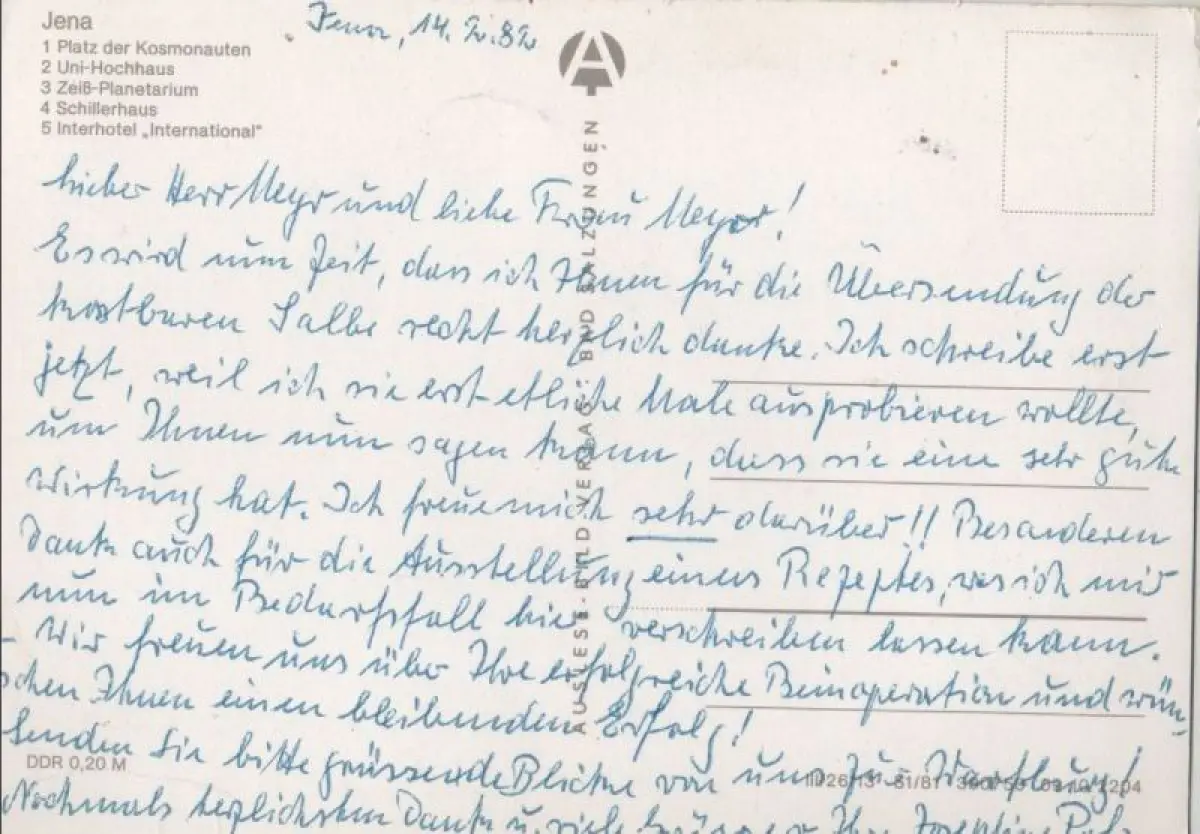 Jena
1 Platz der Kosmonauten
2 Uni-Hochhaus
3 Zeiß-Planetarium
4 Schillerhaus
5 Interhotel „International"
Jena, 14.2.82
Lieber Herr Meyer und liebe Frau Meyer!
Es wird nun Zeit, dass ich Ihnen für die Übersendung der
kostbaren Salbe recht herzlich danke. Ich schreibe erst
jetzt, weil ich sie erst etliche Male ausprobieren wollte,
um Ihnen nun sagen kann, dass sie eine sehr gute
Wirkung hat. Ich freue mich sehr darüber!! Besonderen
Dank auch für die Ausstellung eines Rezeptes, was ich mir
nun im Bedarfsfall hier verschreiben lassen kann.
– Wir freuen uns über Ihre erfolgreiche Beinoperation und wün-
schen Ihnen einen bleibenden Erfolg!
Senden Sie bitte grüssende Blicke von uns zur Wartburg!
Nochmals herzlichsten Dank u. viele Grüsse Ihre Josephine
AUSLESE-BILD-VERLAG · BAD SALZUNGEN
DDR 0,20 M